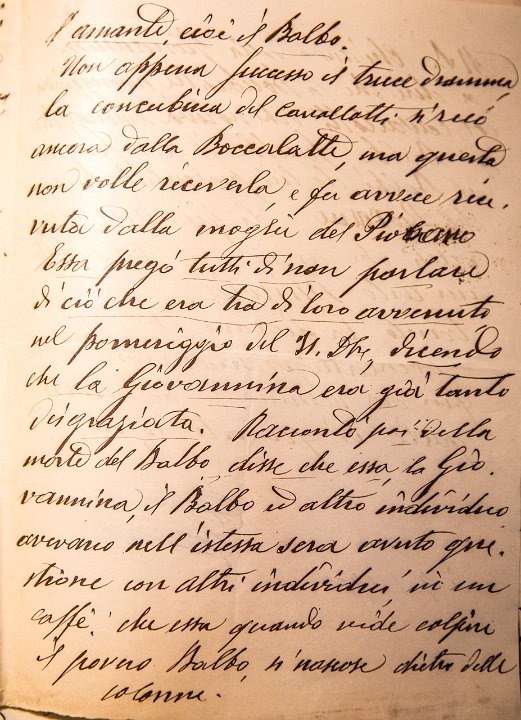 l'amante, cioè il Balbo.
Non appena successo il truce dramma,
la concubina del Cavallotti si recò
ancora dalla Boccalatte, ma questa
non volle riceverla, e fu avvece rice-
vuta dalla moglie del Piovano
Essa pregò tutti di non parlare
di ciò che era tra di loro avvenuto
nel pomeriggio del 31. Dbr, dicendo
che la Giovannina era già tanto
disgraziata. Raccontò poi della
morte del Balbo, disse che essa, la Gio-
vannina, il Balbo ed altro individuo
avevano nell'istessa sera avuto que-
stione con altri individui in un
caffè: che essa quando vide colpire
il povero Balbo, si nascose dietro delle
colonne.